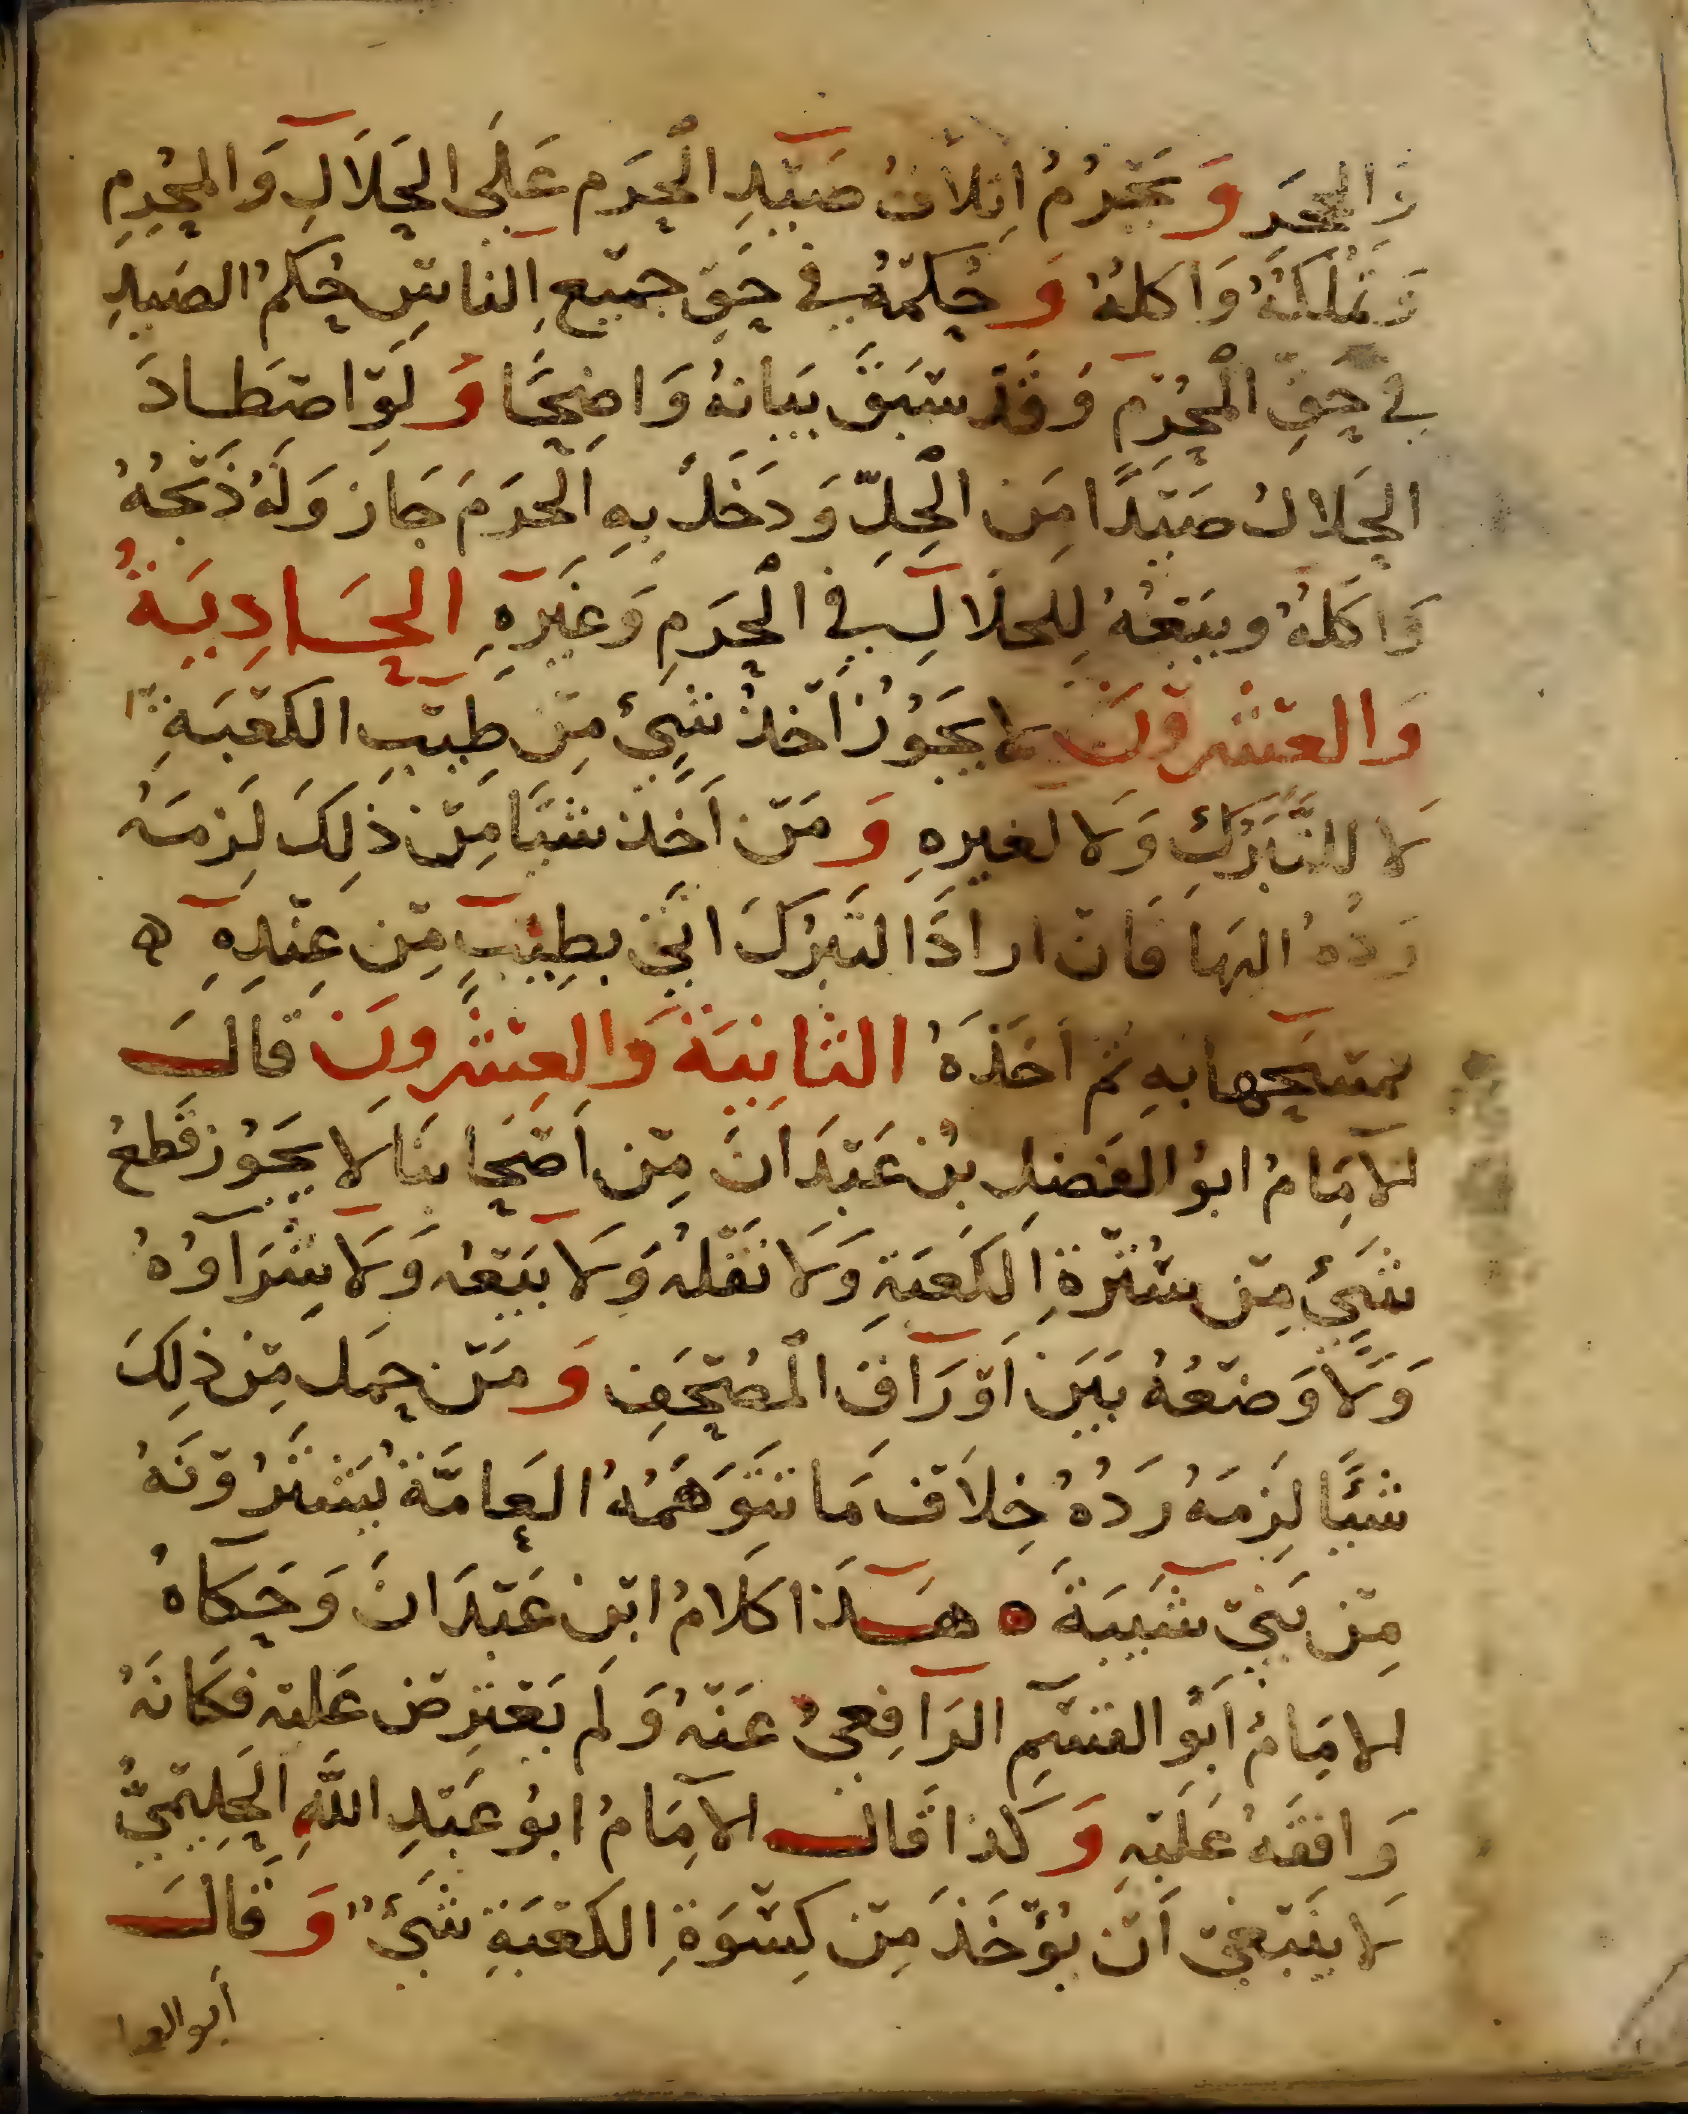 وَالحجر وَيحْرُمُ اتلافُ صَيْدِ الْحَرَم عَلَى الحَلَالِ وَالمحْرِمِ
وَتملكُهُ وَاكلُهُ وَحُكمُهُ في حَقِّ جميْعِ الناسِ حُكمُ الصَيدِ
في حَقِّ الْمحْرم وَقَدْ سَبَقَ بيَانهُ وَاضِحًا وَلَوْ اصْطَادَ
الحَلالُ صَيْدًا مِنَ الْحِلِّ وَدَخَلَ بِهِ الْحَرَمَ جَازَ وَلَهُ ذَبْحُهُ
وَاكلُهُ وبيْعُهُ لِلحلَالِ في الْحَرَمِ وَغَيْرِهِ الحَادِيَةُ
وَالعشْرُونَ لا يجَوُزُ اَخْذُ شَيءٍ مِنْ طِيْبِ الكعْبَةِ
لَا للتَّبَرُّكِ وَلا لغيرهِ وَمَنْ اَخَذ شيًا مِنْ ذلِكَ لَزمَهُ
رَدُّهُ اليهَا فَانْ ارادَ التَبرُّكَ اتَى بِطِيْبٍ مِنْ عِنْدِهِ ه
يمسَحها بهِ ثم اَخَذَهُ الثانِيَةُ وَالعِشْرُونَ قالَ
الامَامُ ابوُ الفَضلِ بْنِ عَبْدَانَ مِنْ اَصْحَابنَا لَا يجَوُز قَطعُ
شَيءٍ مِنْ سُتْرَةِ الكَعبَةِ وَلَا نَقْلُهُ وَلَا بَيْعُهُ وَلَا شِرَآؤُهُ
وَلَا وَضْعُهُ بَيْنَ اَوْرَاقِ الْمصْحَفِ وَمَنْ حمَل مِنْ ذلِكَ
شيْئًا لَزِمَهُ رَدُّهُ خِلَافَ مَا تتَوَهَّمُهُ العَامَّةُ يَشْتَرُوْنَهُ
مِنْ بَنِيْ شَيْبَةَ ه هَذَا كَلَامُ ابْنِ عَبْدَانَ وَحَكاهُ
الامَامُ اَبُو القسِمِ الرَافِعِيُ عَنْهُ وَلَم يَعْترِضْ عَليْهِ فَكانَّهُ
وَافقَهُ عَلَيْهِ وَكَذا قَالَ الاِمَامُ ابوُ عَبْدِ اللَّهِ الحَلِيْمِيُّ
لَا ينْبَغِيْ اَنْ يُؤْخَذَ مِنْ كِسْوَةِ الكعْبَةِ شَيْءٌ وَقَالَ
أبو العبا